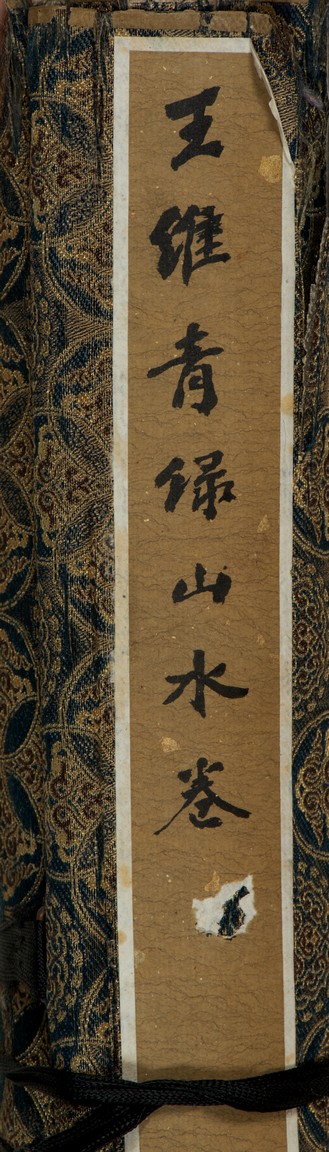 王維青綠山水卷